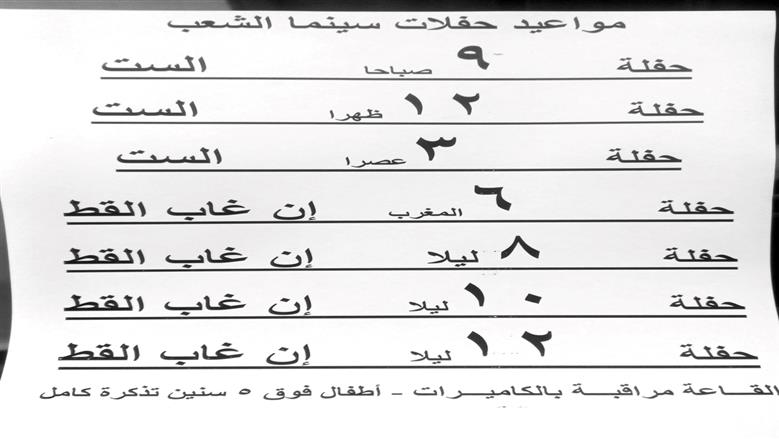 مواعيد حفلات سينما الشعب
حفلة ٩ صباحا الست
حفلة ١٢ ظهرا الست
حفلة ٣ عصرا الست
حفلة ٦ المغرب إن غاب القط
حفلة ٨ ليلا إن غاب القط
حفلة ١٠ ليلا إن غاب القط
حفلة ١٢ ليلا إن غاب القط
القاعة مراقبة بالكاميرات - أطفال فوق ٥ سنين تذكرة كامل